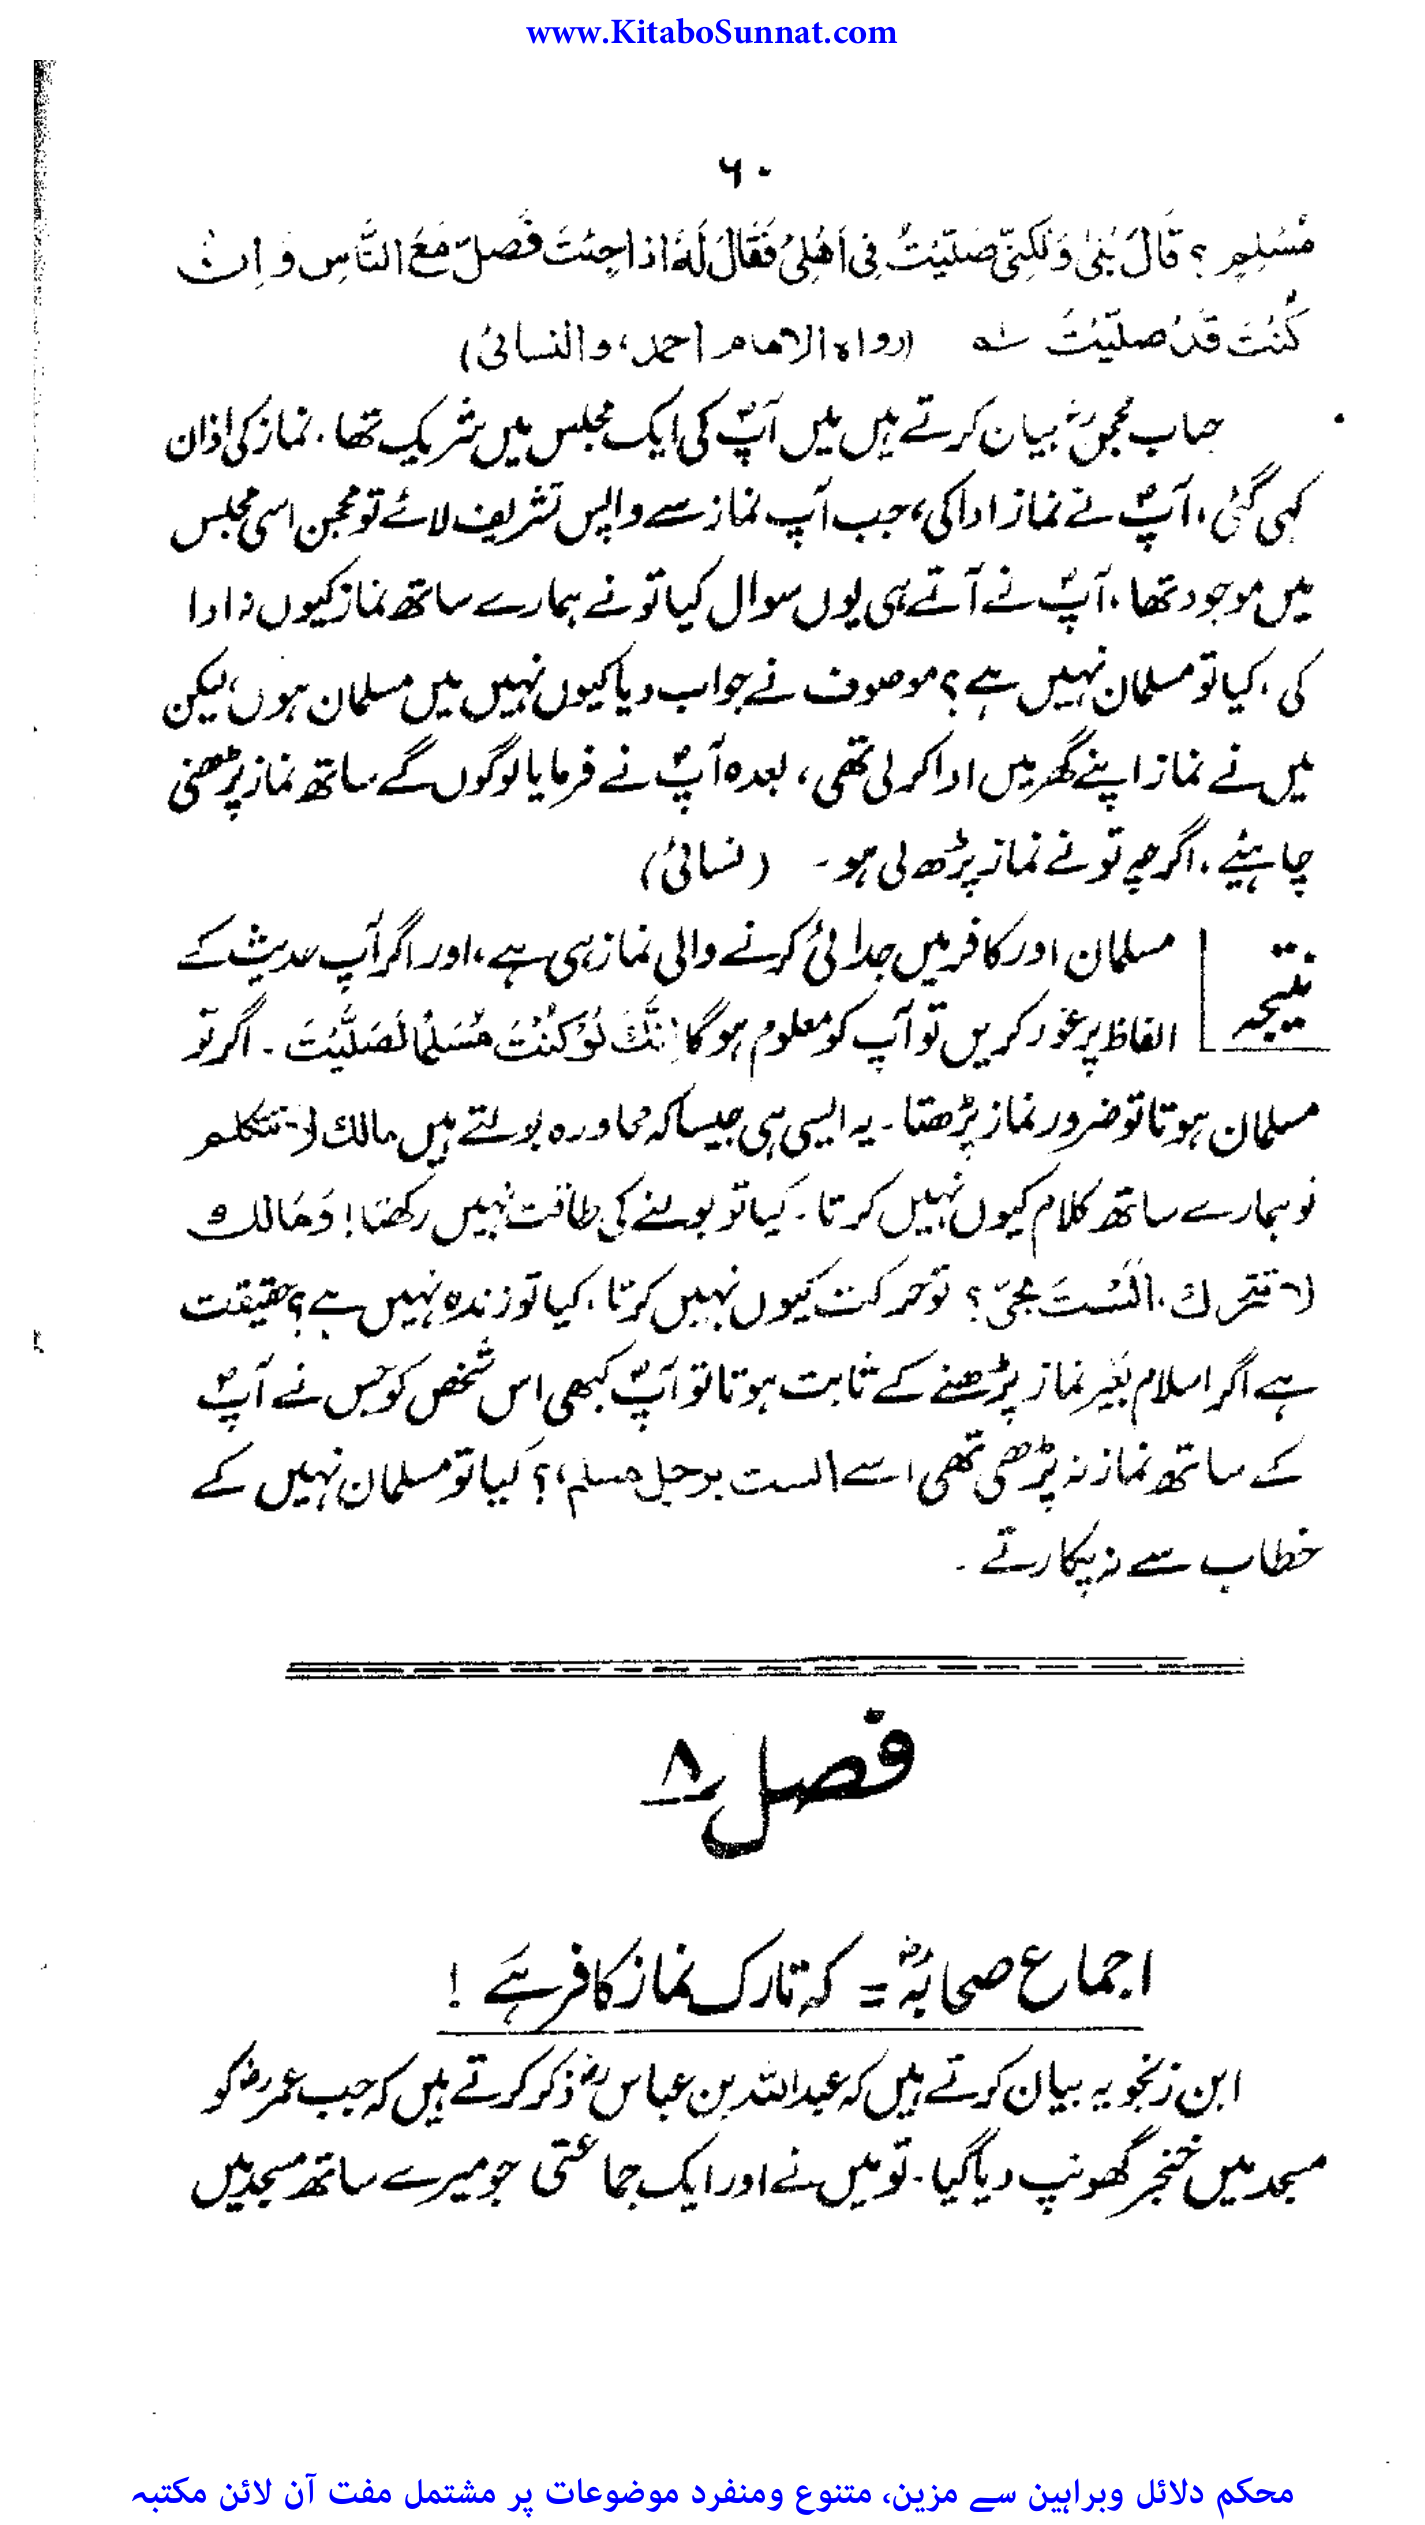 www.KitaboSunnat.com
۶۰
مُسْلِمٍ ؟ قَالَ بَلٰی وَلٰکِنِّی صَلَّیْتُ فِی اَهْلِیْ فَقَالَ لَهُ اِذَا جِئْتَ فَصَلِّ مَعَ النَّاسِ وَاِنْ
کُنْتَ قَدْ صَلَّیْتَ لہ (رواہ الامام احمد، والنسائیؒ)
جناب محجنؓ بیان کرتے ہیں میں آپؐ کی ایک مجلس میں شریک تھا۔ نماز کی اذان
کہی گئی، آپؐ نے نماز ادا کی، جب آپ نماز سے واپس تشریف لائے تو محجن اسی مجلس
میں موجود تھا، آپؐ نے آتے ہی یوں سوال کیا تو نے ہمارے ساتھ نماز کیوں نہ ادا
کی، کیا تو مسلمان نہیں ہے؟ موصوف نے جواب دیا کیوں نہیں میں مسلمان ہوں، لیکن
میں نے نماز اپنے گھر میں ادا کر لی تھی، بعدہ آپؐ نے فرمایا لوگوں کے ساتھ نماز پڑھنی
چاہیئے، اگرچہ تو نے نماز پڑھ لی ہو۔ (نسائیؒ)
نتیجہ مسلمان اور کافر میں جدائی کرنے والی نماز ہی ہے، اور اگر آپ حدیث کے
الفاظ پر غور کریں تو آپ کو معلوم ہوگا اِنَّكَ لَوْ کُنْتَ مُسْلِمًا لَصَلَّیْتَ۔ اگر تو
مسلمان ہوتا تو ضرور نماز پڑھتا۔ یہ ایسی ہی جیسا کہ محاورہ بولتے ہیں مالك لا تتكلم
تو ہمارے ساتھ کلام کیوں نہیں کرتا۔ کیا تو بولنے کی طاقت نہیں رکھتا! وَمَالك
لا تتحرك، اَلَسْتَ بحیّ؟ تو حرکت کیوں نہیں کرتا، کیا تو زندہ نہیں ہے؟ حقیقت
ہے اگر اسلام بغیر نماز پڑھنے کے ثابت ہوتا تو آپؐ کبھی اس شخص کو جس نے آپؐ
کے ساتھ نماز نہ پڑھی تھی اسے الست برجل مسلم؟ کیا تو مسلمان نہیں کے
خطاب سے نہ پکارتے۔
فصل ۸
اجماع صحابہؓ = کہ تارک نماز کافر ہے !
ابن زنجویہ بیان کرتے ہیں کہ عبداللہ بن عباسؓ ذکر کرتے ہیں کہ جب عمرؓ کو
مسجد میں خنجر گھونپ دیا گیا۔ تو میں نے اور ایک جماعتی جو میرے ساتھ مسجد میں
محکم دلائل وبراہین سے مزین، متنوع ومنفرد موضوعات پر مشتمل مفت آن لائن مکتبہ